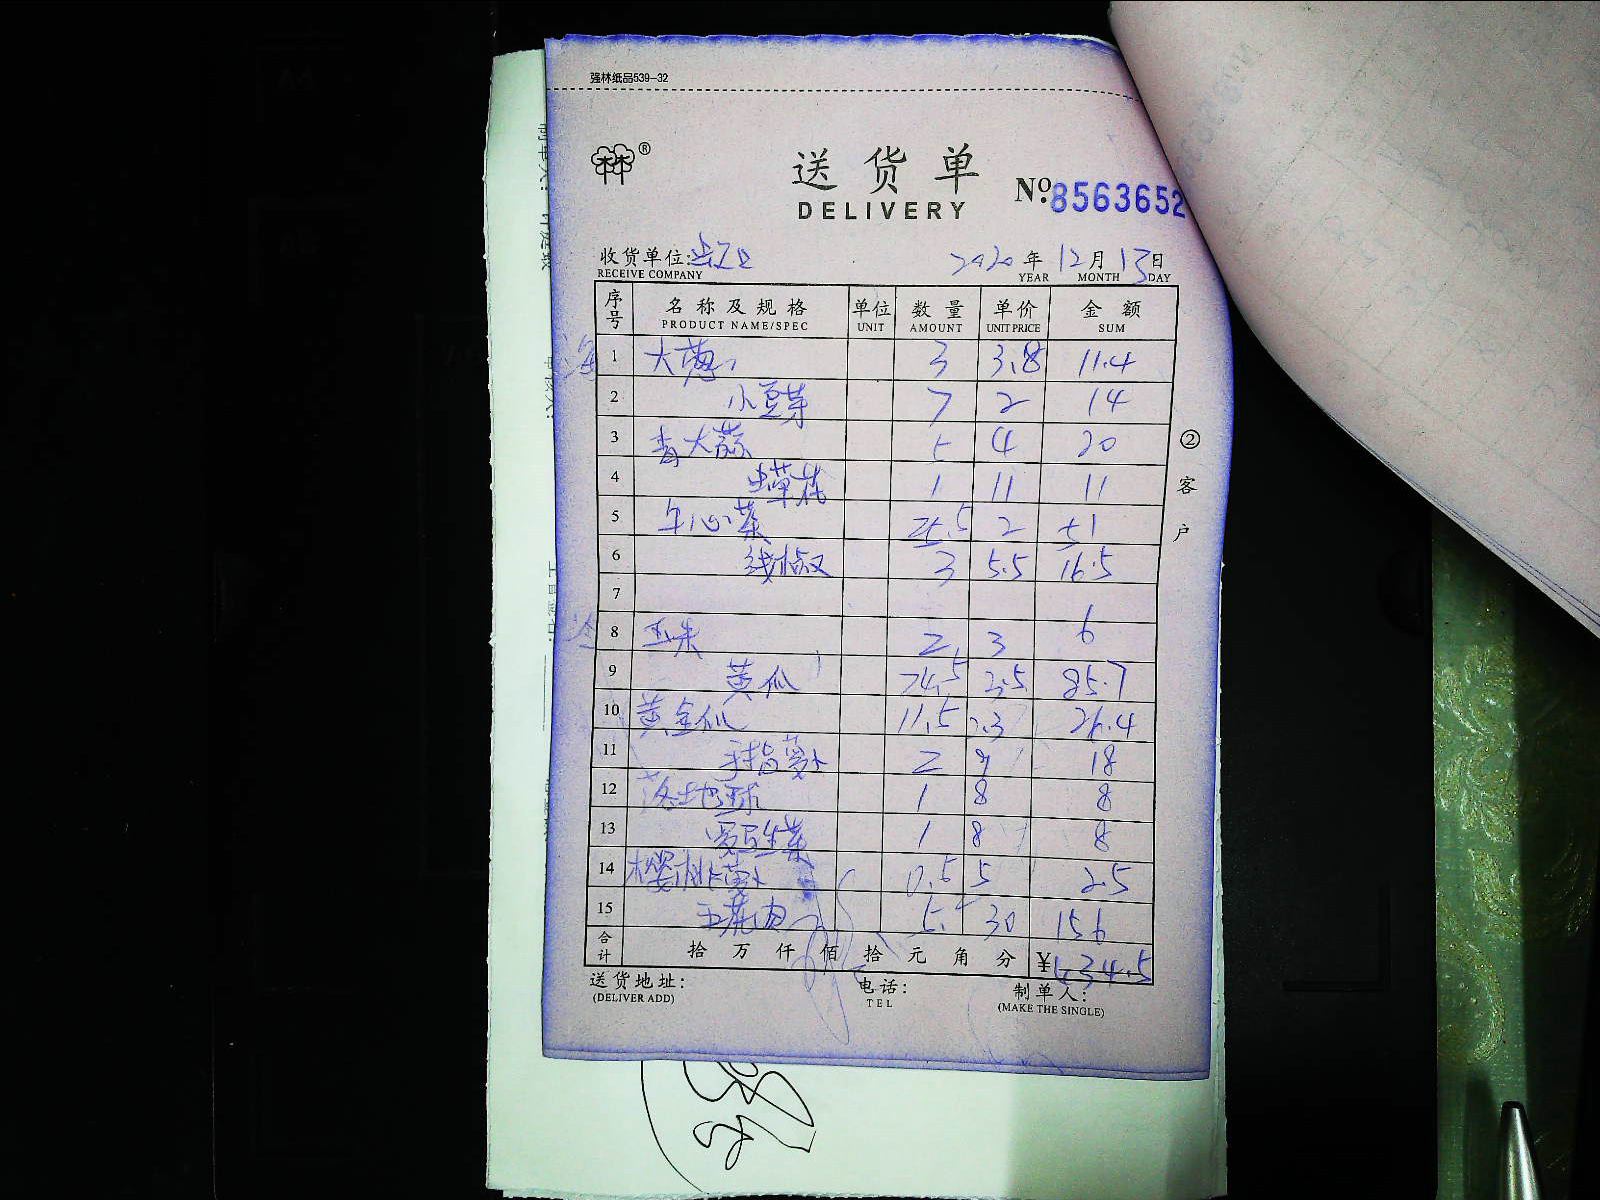 强林纸品539-32
送货单
DELIVERY
No: 8563652
收货单位:
RECEIVE COMPANY
2020年12月13日
YEAR MONTH DAY
序号 名称及规格 单位 数量 单价 金额
PRODUCT NAME/SPEC UNIT AMOUNT UNIT PRICE SUM
1 大葱 3 3.8 11.4
2 小豆芽 7 2 14
3 青大蒜 5 4 20
4 虫草花 1 11 11
5 牛心菜 25.5 2 51
6 线椒 3 5.5 16.5
7
8 玉米 2 3 6
9 黄瓜 24.5 3.5 85.7
10 黄金瓜 11.5 2.3 26.4
11 手指萝卜 2 9 18
12 落地球 1 8 8
13 罗马生菜 1 8 8
14 樱桃萝卜 0.5 5 2.5
15 五花肉 30 156
合计 拾万仟佰拾元角分 ¥
送货地址: 电话: 制单人:
(DELIVER ADD) TEL (MAKE THE SINGLE)
②客户